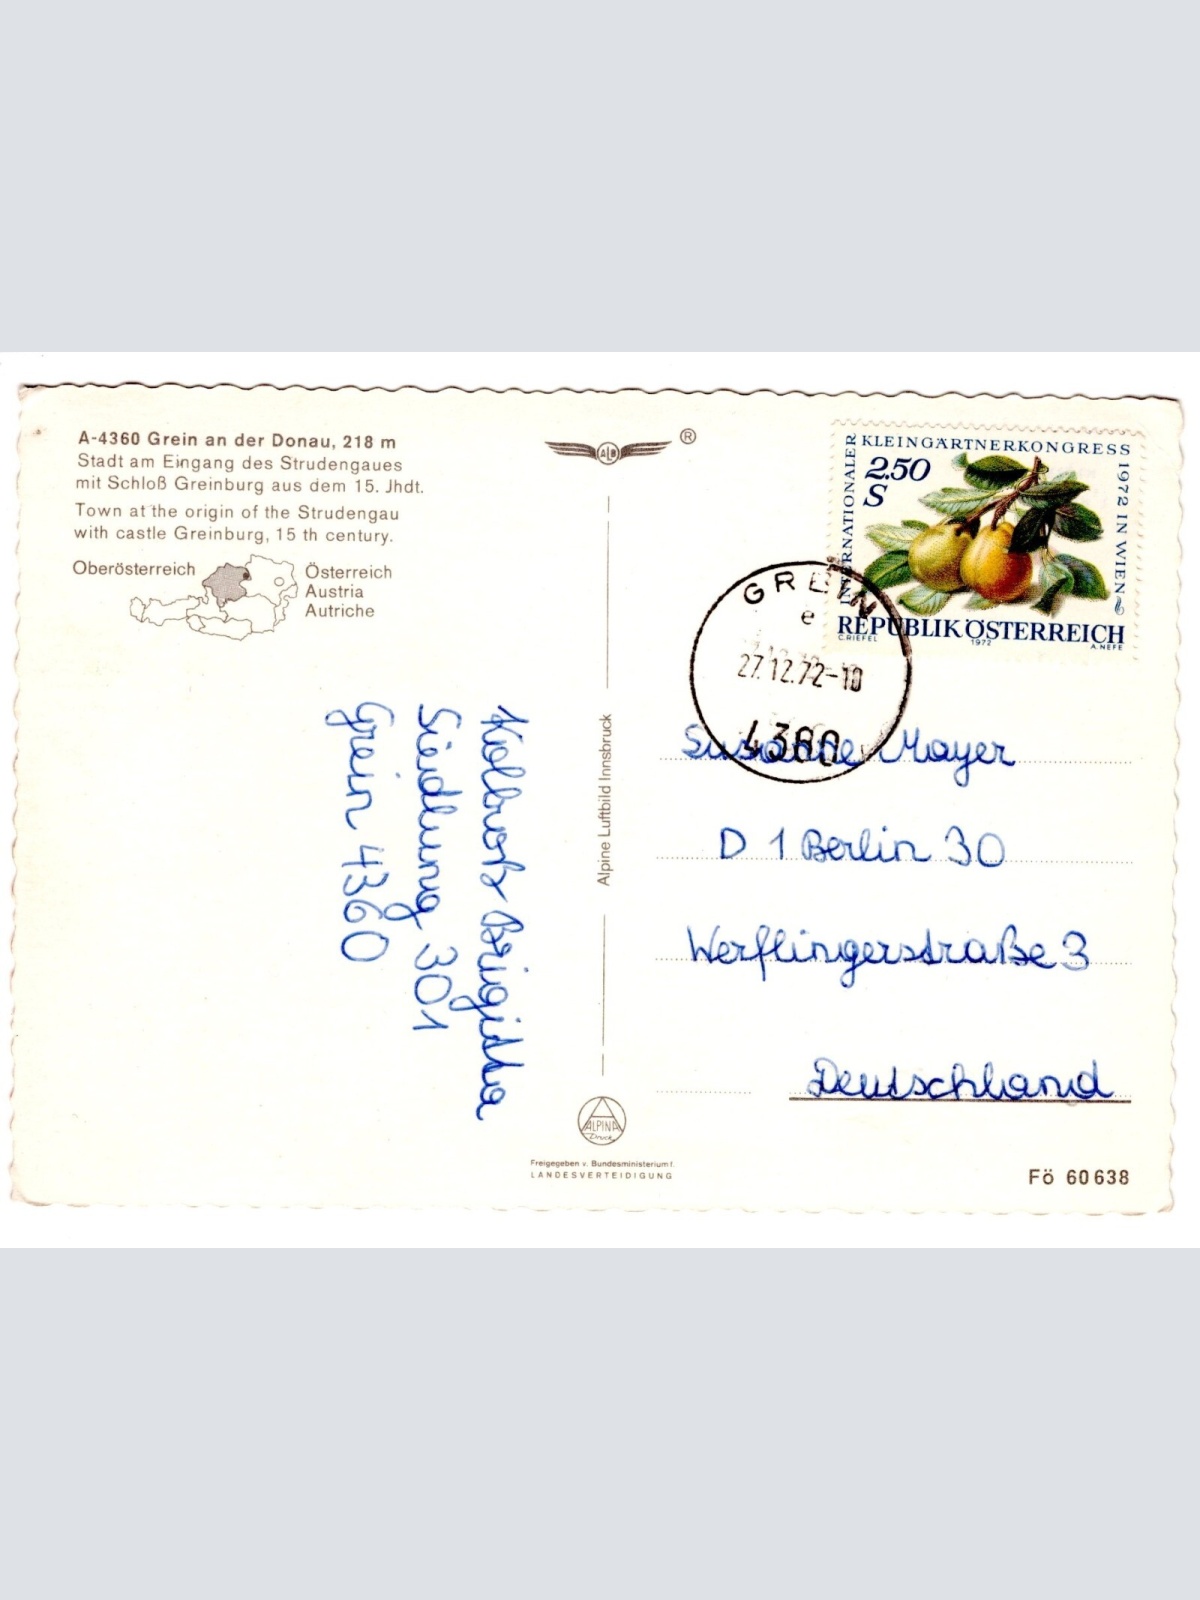 A-4360 Grein an der Donau, 218 m
Stadt am Eingang des Strudengaues
mit Schloß Greinburg aus dem 15. Jhdt.
Town at the origin of the Strudengau
with castle Greinburg, 15 th century.
Oberösterreich
Österreich
Austria
Autriche
Kolbrots Brigitta
Siedlung 301
Grein 4360
ALB
®
Alpine Luftbild Innsbruck
ALPINA
Druck
Freigegeben v. Bundesministerium f.
LANDESVERTEIDIGUNG
INTERNATIONALER KLEINGÄRTNERKONGRESS 1972 IN WIEN
2.50
S
REPUBLIK ÖSTERREICH
C.RIEFEL 1972 A.NEFE
GREIN
e
27.12.72-10
4360
Susanne Mayer
D 1 Berlin 30
Werflingerstraße 3
Deutschland
Fö 60 638